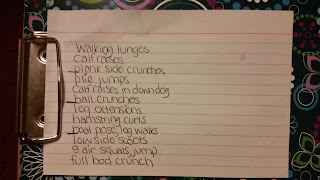 Walking lunges
Calf raises
plank side crunches
plie jumps
calf raises in down dog
ball crunches
leg extensions
hamstring curls
boat pose, leg walks
low side scoots
8 air squats, jump
full bod crunch